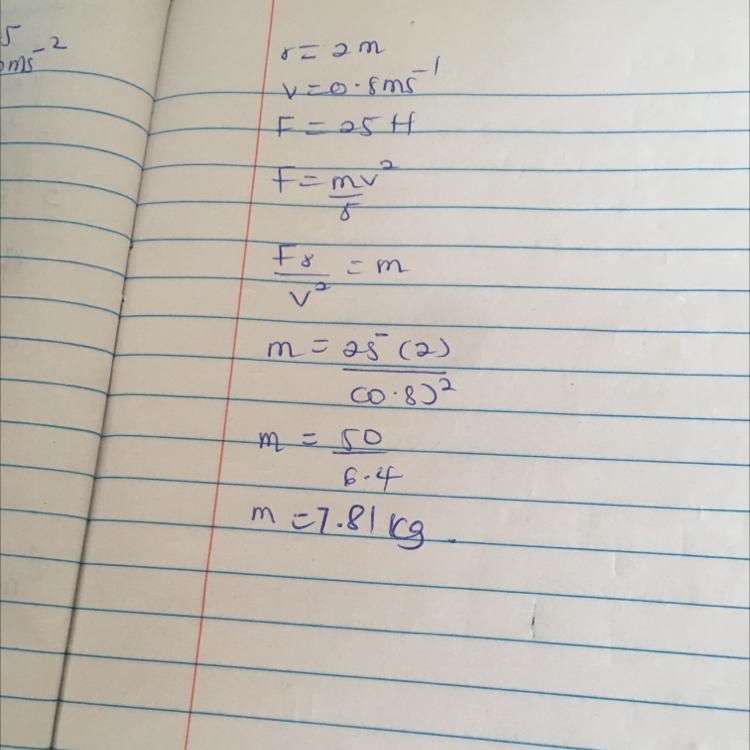 5
ms⁻²
r = 2 m
v = 0.8 ms⁻¹
F = 25 N
F = mv²
r
Fr = m
v²
m = 25 (2)
(0.8)²
m = 50
6.4
m = 7.81 kg.